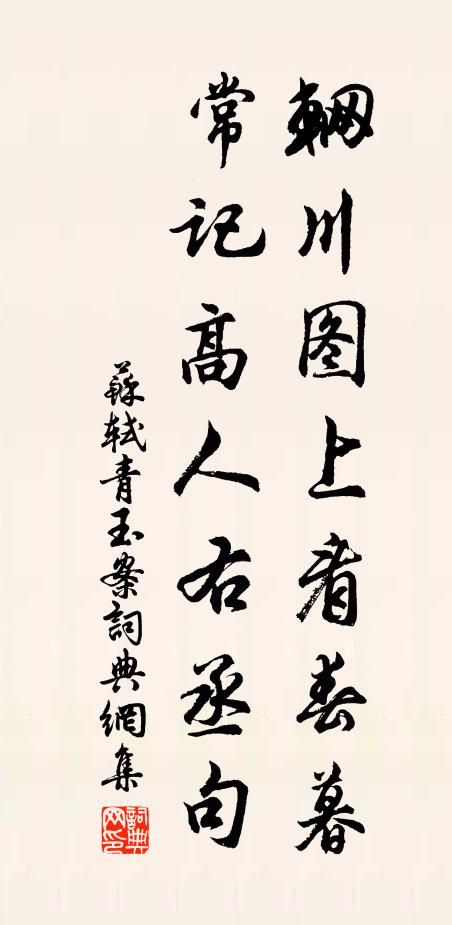 輞川图上看春暮
常记高人右丞句
蘇軾青玉案詞典網集
詞典网印